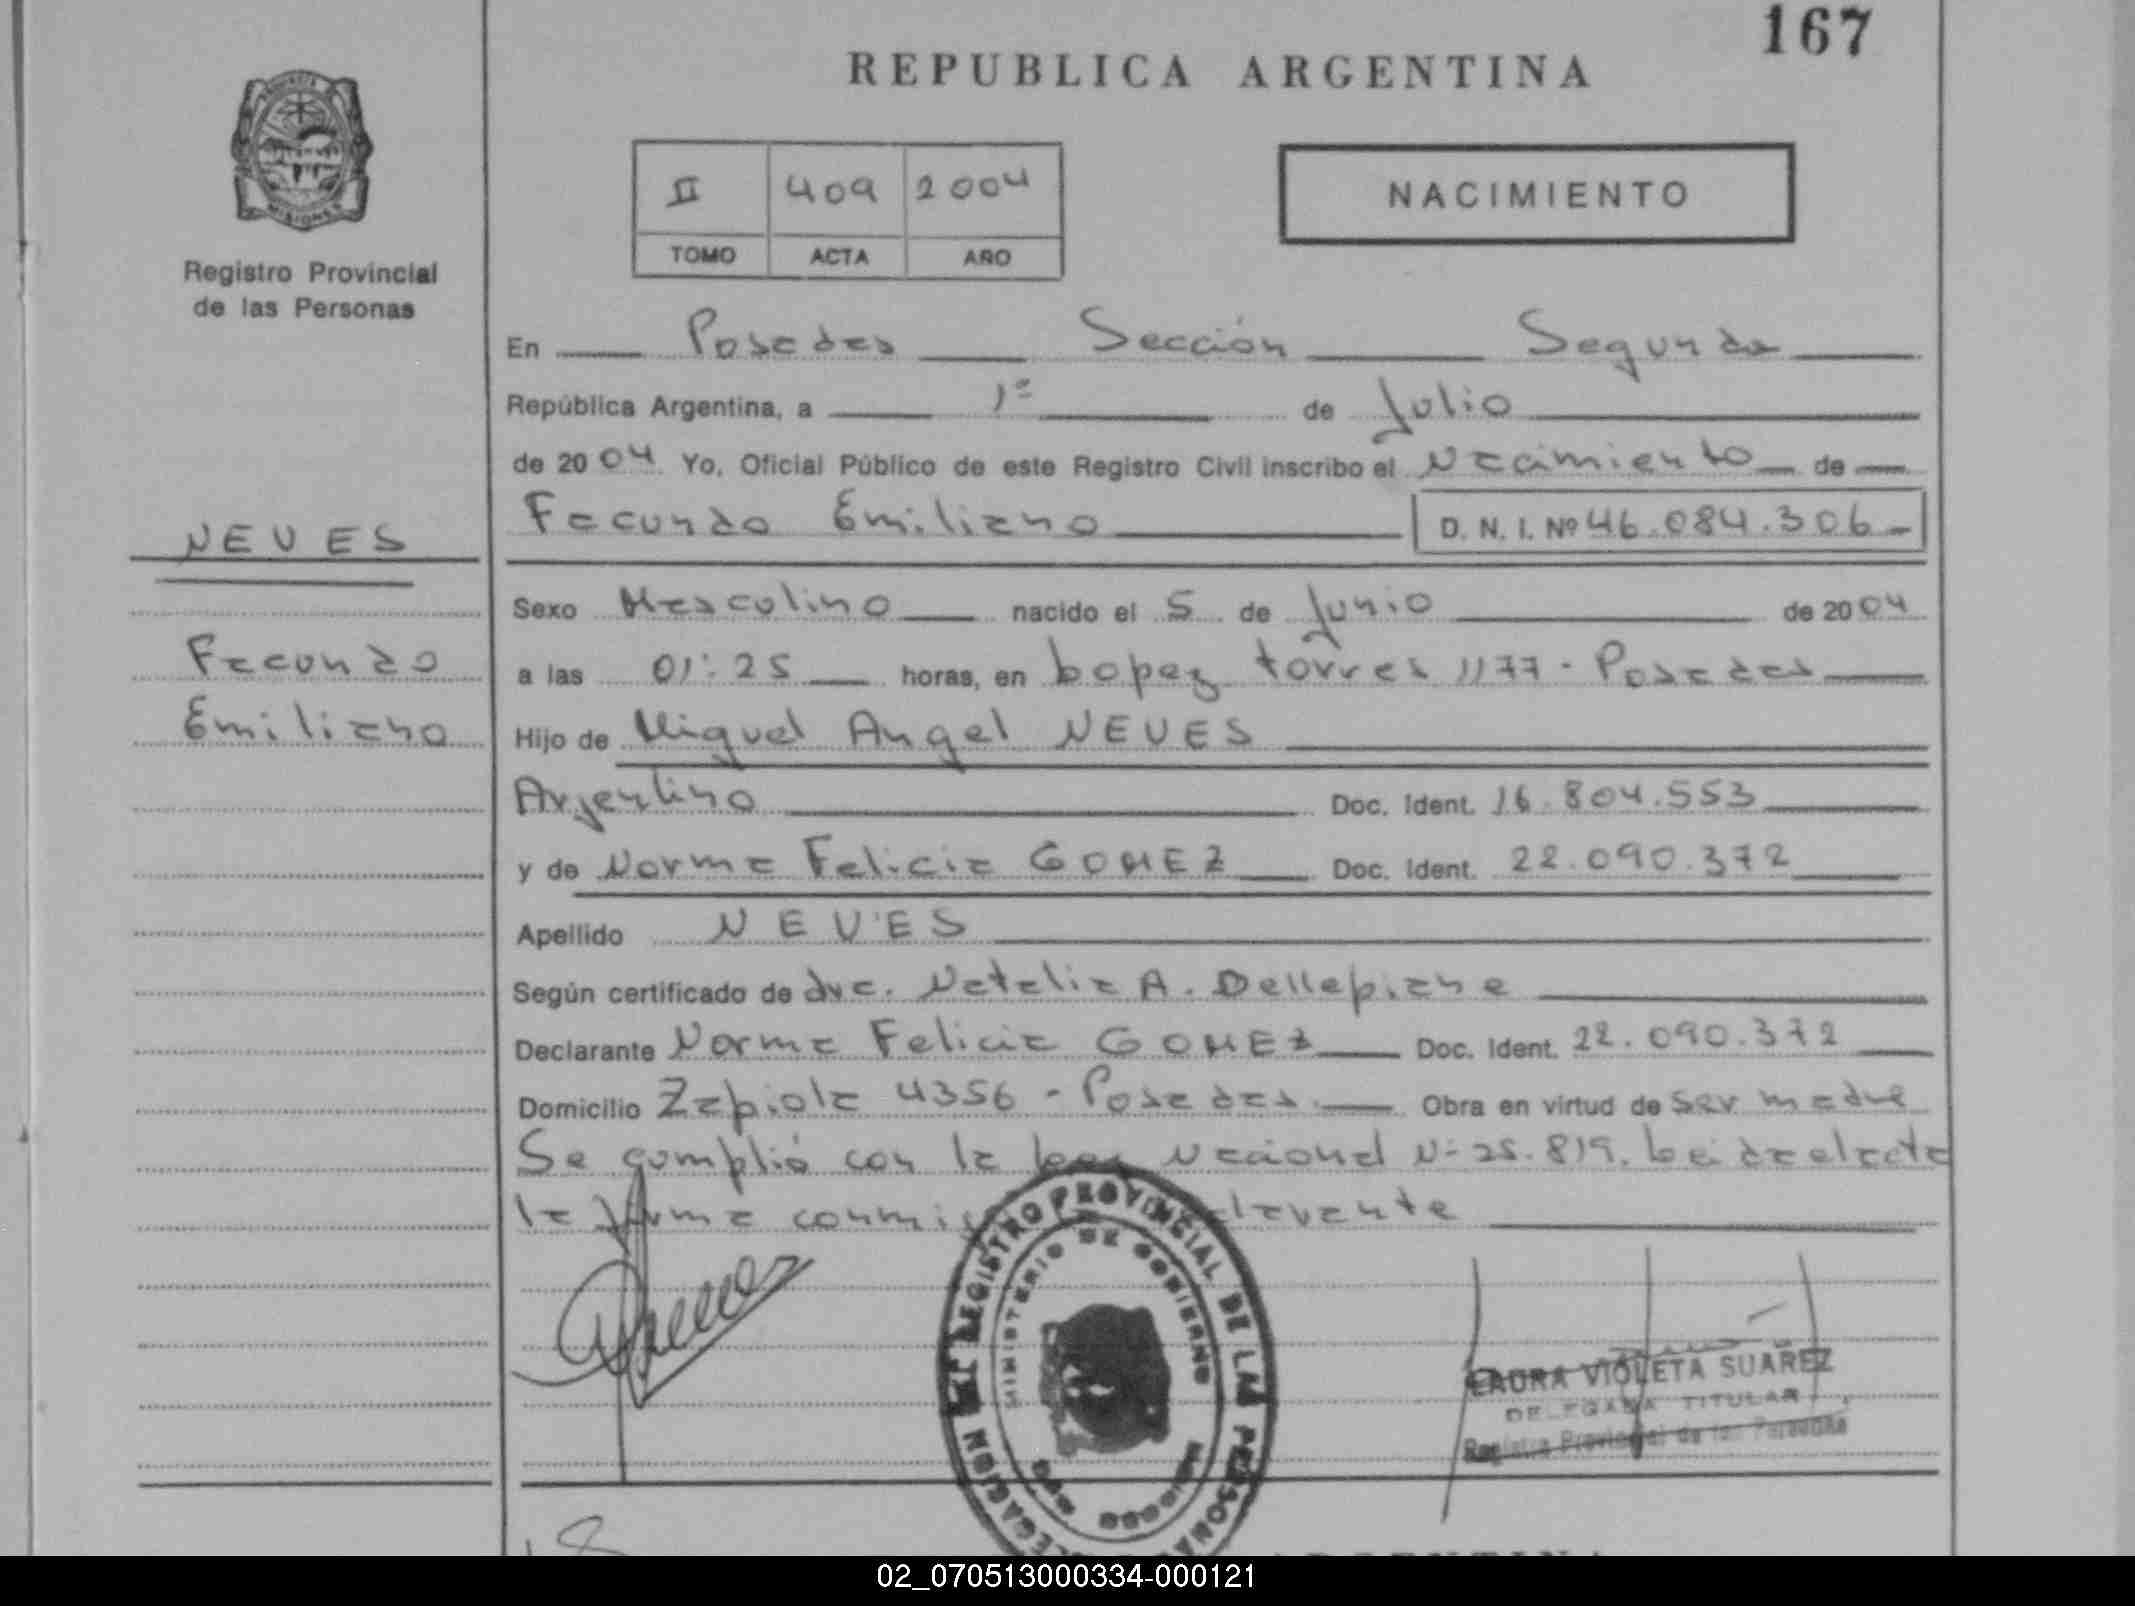 167
REPUBLICA ARGENTINA
MISIONES
Registro Provincial
de las Personas
II 409 2004
TOMO ACTA AÑO
NACIMIENTO
En Posadas Sección Segunda
República Argentina, a 1º de Julio
de 2004 Yo, Oficial Público de este Registro Civil inscribo el Nacimiento de
Facundo Emiliano D. N. I. Nº 46.084.306
NEVES
Facundo
Emiliano
Sexo Masculino nacido el 5 de Junio de 2004
a las 01:25 horas, en Lopez torres 1177 - Posadas
Hijo de Miguel Angel NEVES
Argentino Doc. Ident. 16.804.553
y de Norma Felicia GOMEZ Doc. Ident. 22.090.372
Apellido NEVES
Según certificado de dra. Natalia A. Dellepiane
Declarante Norma Felicia GOMEZ Doc. Ident. 22.090.372
Domicilio Zapiola 4356 - Posadas Obra en virtud de ser madre
Se cumplió con la Ley Nacional Nº 25.819. Leida el acta
la firma conmigo la
REGISTRO PROVINCIAL DE LAS PERSONAS
MINISTERIO DE GOBIERNO
DELEGACION
LAURA VIOLETA SUAREZ
DELEGADA TITULAR
Registro Provincial de las Personas
02_070513000334-000121